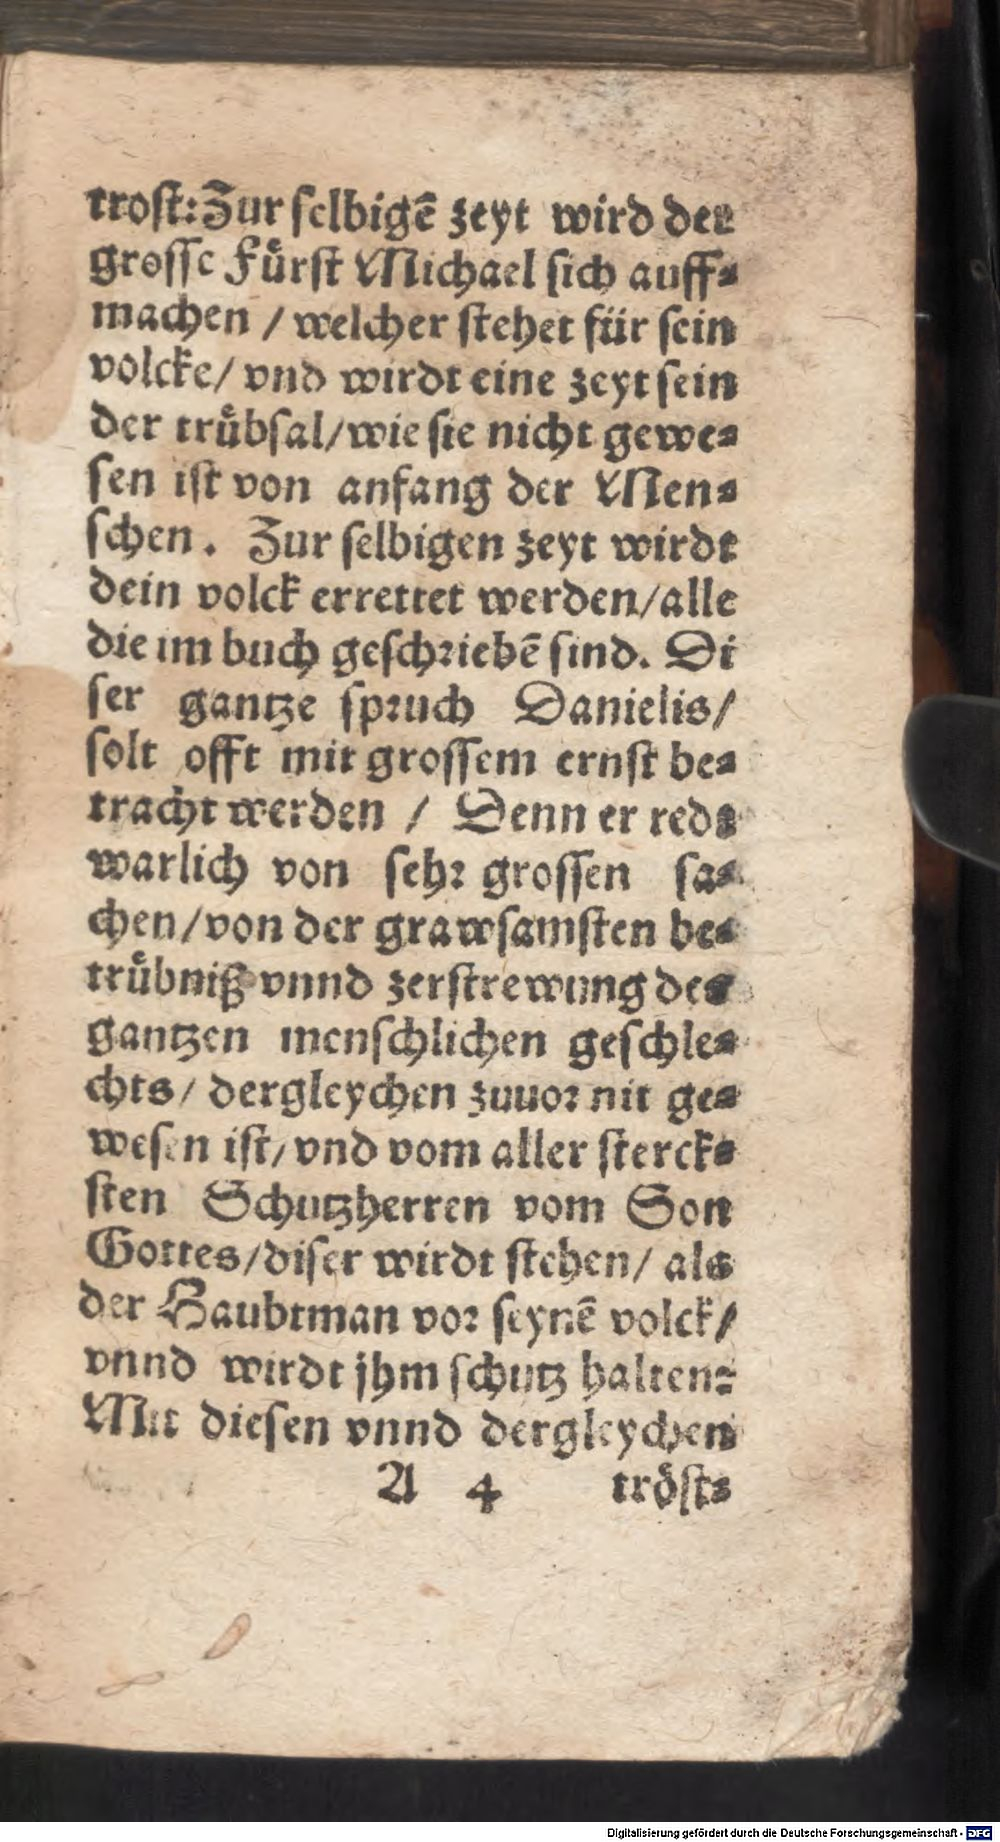 trost: Zur selbigē zeyt wird der
grosse Fuͤrst Michael sich auff⸗
machen / welcher stehet für sein
volcke/ vnd wirdt eine zeyt sein
der truͤbsal/wie sie nicht gewe⸗
sen ist von anfang der Men⸗
schen. Zur selbigen zeyt wirdt
dein volck errettet werden/alle
die im buch geschriebē sind. Di
ser gantze spruch Danielis/
solt offt mit grossem ernst be⸗
tracht werden / Denn er redt
warlich von sehr grossen sa⸗
chen/von der grawsamsten be⸗
truͤbniß vnnd zerstrewung des
gantzen menschlichen geschle⸗
chts/ dergleychen zuuor nit ge⸗
wesen ist/ vnd vom aller sterck⸗
sten Schutzherren vom Son
Gottes/diser wirdt stehen/ als
der Haubtman vor seynē volck/
vnnd wirdt jhm schutz halten:
Mit diesen vnnd dergleychen
A 4 troͤst⸗
Digitalisierung gefördert durch die Deutsche Forschungsgemeinschaft - DFG